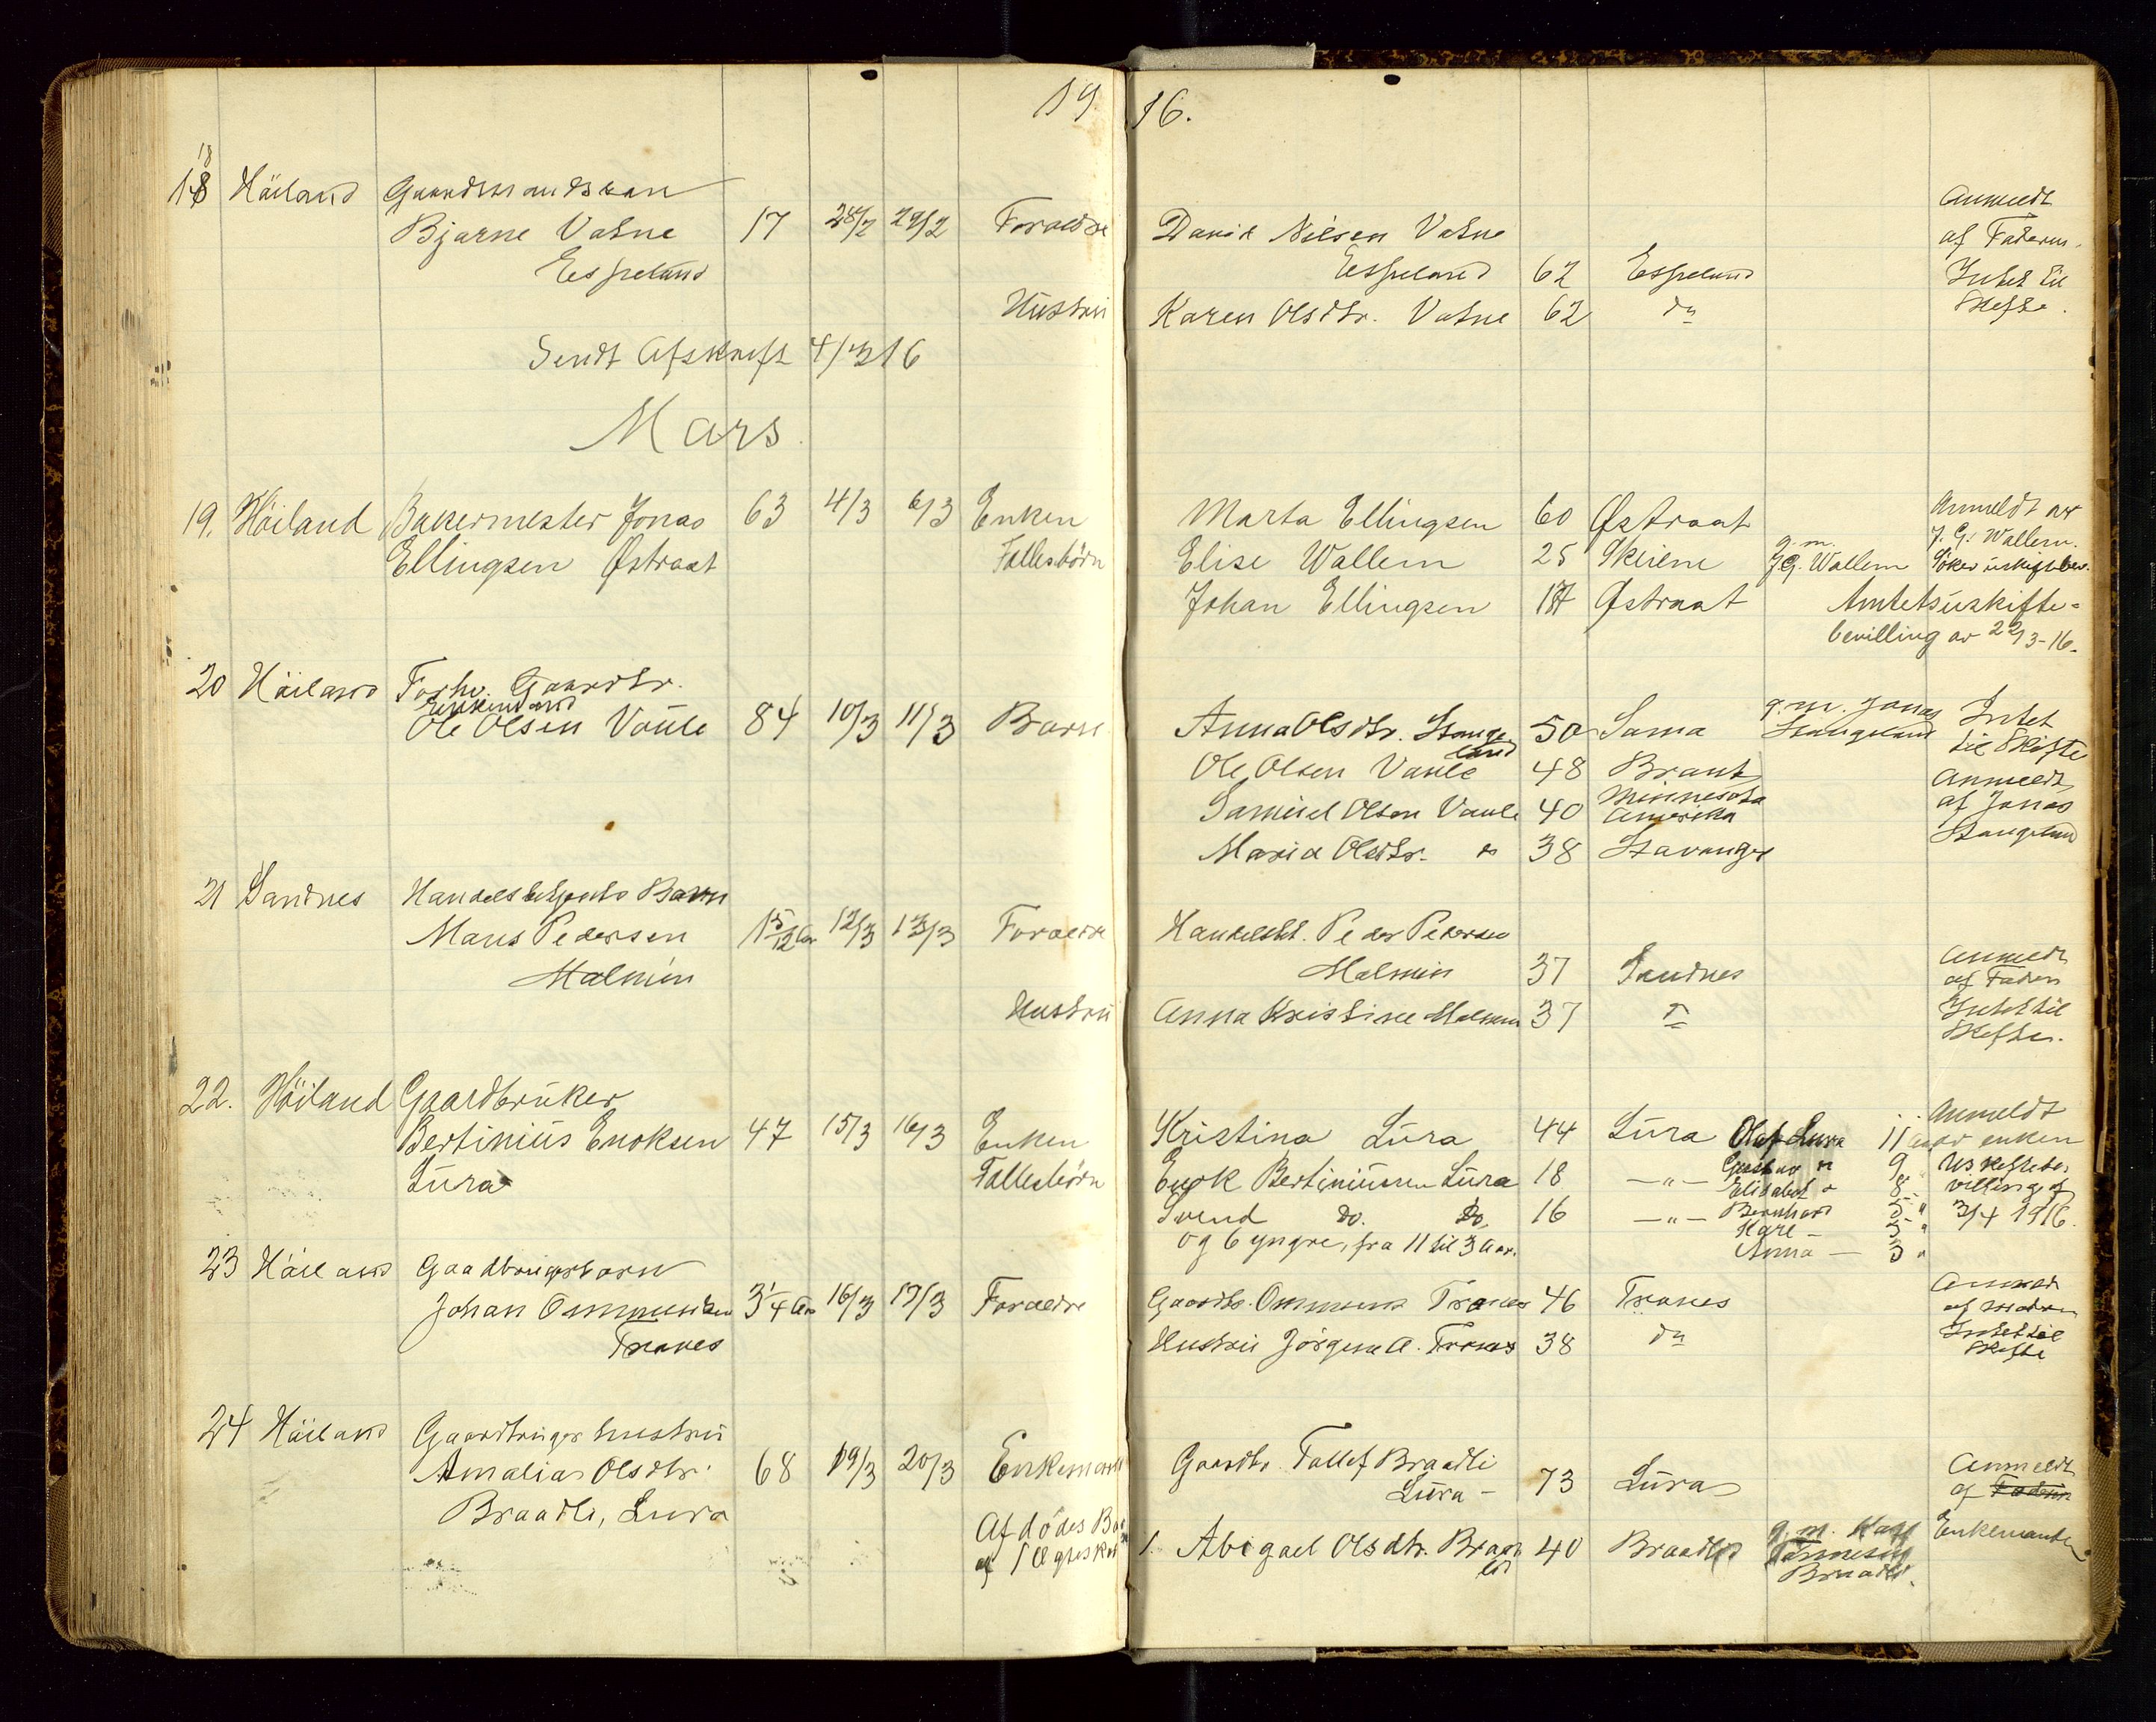 1916.
18
18 Höiland Gaardmandskan
Bjarne Vatne 17 28/2 29/2 Foraeldre David Nilsen Vatne Anmeldt
af Faderen.
Espeland Espeland 62 Espeland Intet til
Hustru Karen Olsdtr. Vatne 62 do Skifte.
Sendt Afskrift 4/3 16
Mars.
19. Höiland Bakermester Jonas 63 4/3 6/3 Enken Marta Ellingsen 60 Østraat Anmeldt av
J. G. Wallem.
Ellingsen Østraat Fællesbörn Elise Wallem 25 Skeiene g. m. J. G. Wallem Söker uskiftebev.
Johan Ellingsen 17 Østraat Amtets uskifte-
bevilling av 22/3-16.
20 Höiland Forhv. Gaardbr.
Enkemand
Ole Olsen Vaule 84 10/3 11/3 Barn Anna Olsdtr. Stangeland 50 Soma g. m. Jonas Stangeland Intet
til Skifte
Ole Olsen Vaule 48 Brant Anmeldt
Samuel Olsen Vaule 40 Minnesota Amerika af Jonas
Stangeland
Maria Olsdtr. do 38 Stavanger
21 Sandnes Handelsbetjents Barn
Maus Pedersen 1 5/12 Aar 12/3 13/3 Foraeldre Handelsbt. Peder Pedersen
Malmin Malmin 37 Sandnes Anmeldt
af Faderen
Hustru Anna Kristine Malmin 37 do Intet til
Skifte.
22. Höiland Gaardbruker
Bertinius Enoksen 47 15/3 16/3 Enken Kristina Lura 44 Lura Olaf Lura 11 aar Anmeldt
av enken
Lura Fællesbörn Enok Bertiniussen Lura 18 —"— Gustav " 9 " Uskiftebe-
Elisabet " 8 " villing af
Svend Do. Do. 16 —"— Bernhard 5 " 3/4 1916.
og 6 yngre, fra 11 til 3 Aar. Karl — 5 "
Anna — 3 "
23 Höiland Gaardbrugerbarn
Johan Ommundsen 3 1/4 Aar 16/3 17/3 Foraeldre Gaardbr. Ommund Tranes 46 Tranes Anmeldt
af Moderen
Tranes Hustru Jörgine A. Tranes 38 do Intet til
Skifte
24 Höiland Gaardbruger hustru
Amalia Olsdtr. 68 19/3 20/3 Enkemand Gaardbr. Tollef Braadli
Lura — 73 Lura Anmeldt
af Faderen
Braadli, Lura
Afdødes Barn
af 1 Ægteskab 1. Abigael Olsdtr. Braadli 40 Braadli g. m. Karl Tönnesen Braadli. Enkemanden